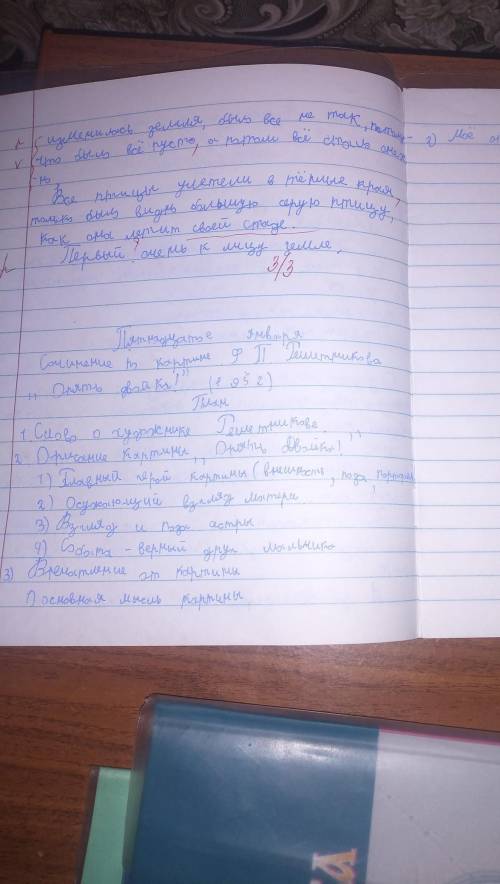 изменилась земля, было всё не так, потому-
что было всё пусто, а потом всё стало снеж
но
Все птицы улетели в тёплые края,
только было видно большую серую птицу,
как она летит своей стаде.
Первый очень к лицу земле.
3/3
2) Моё
Пятнадцатое января
Сочинение по картине Ф П Решетникова
„Опять двойка!" (1952)
План
1. Слово о художнике Решетникове.
2. Описание картины „Опять двойка!"
1) Главный герой картины (внешность, поза, портфель
2) Осуждающий взгляд матери
3) Взгляд и поза сестры
4) Собака - верный друг мальчика
3) Впечатление от картины
1) основная мысль картины